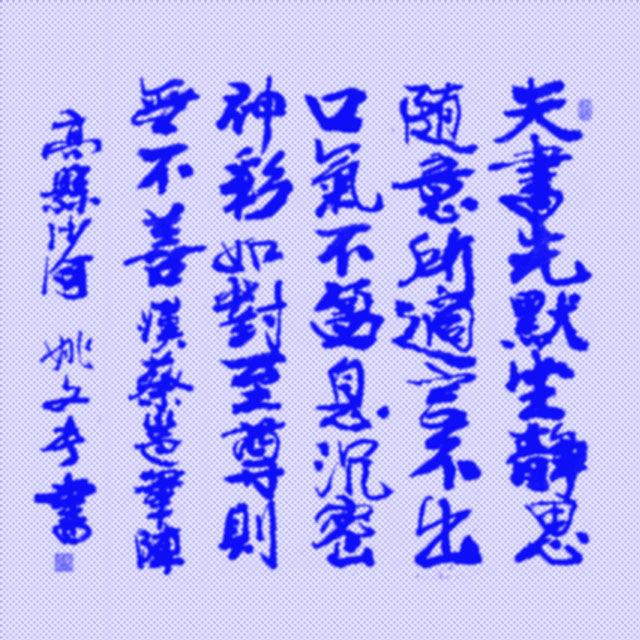 夫書先默坐靜思
隨意所適言不出
口氣不盈息沉密
神彩如對至尊則
無不善漢蔡邕筆陣
高縣沙河 姚文孝書